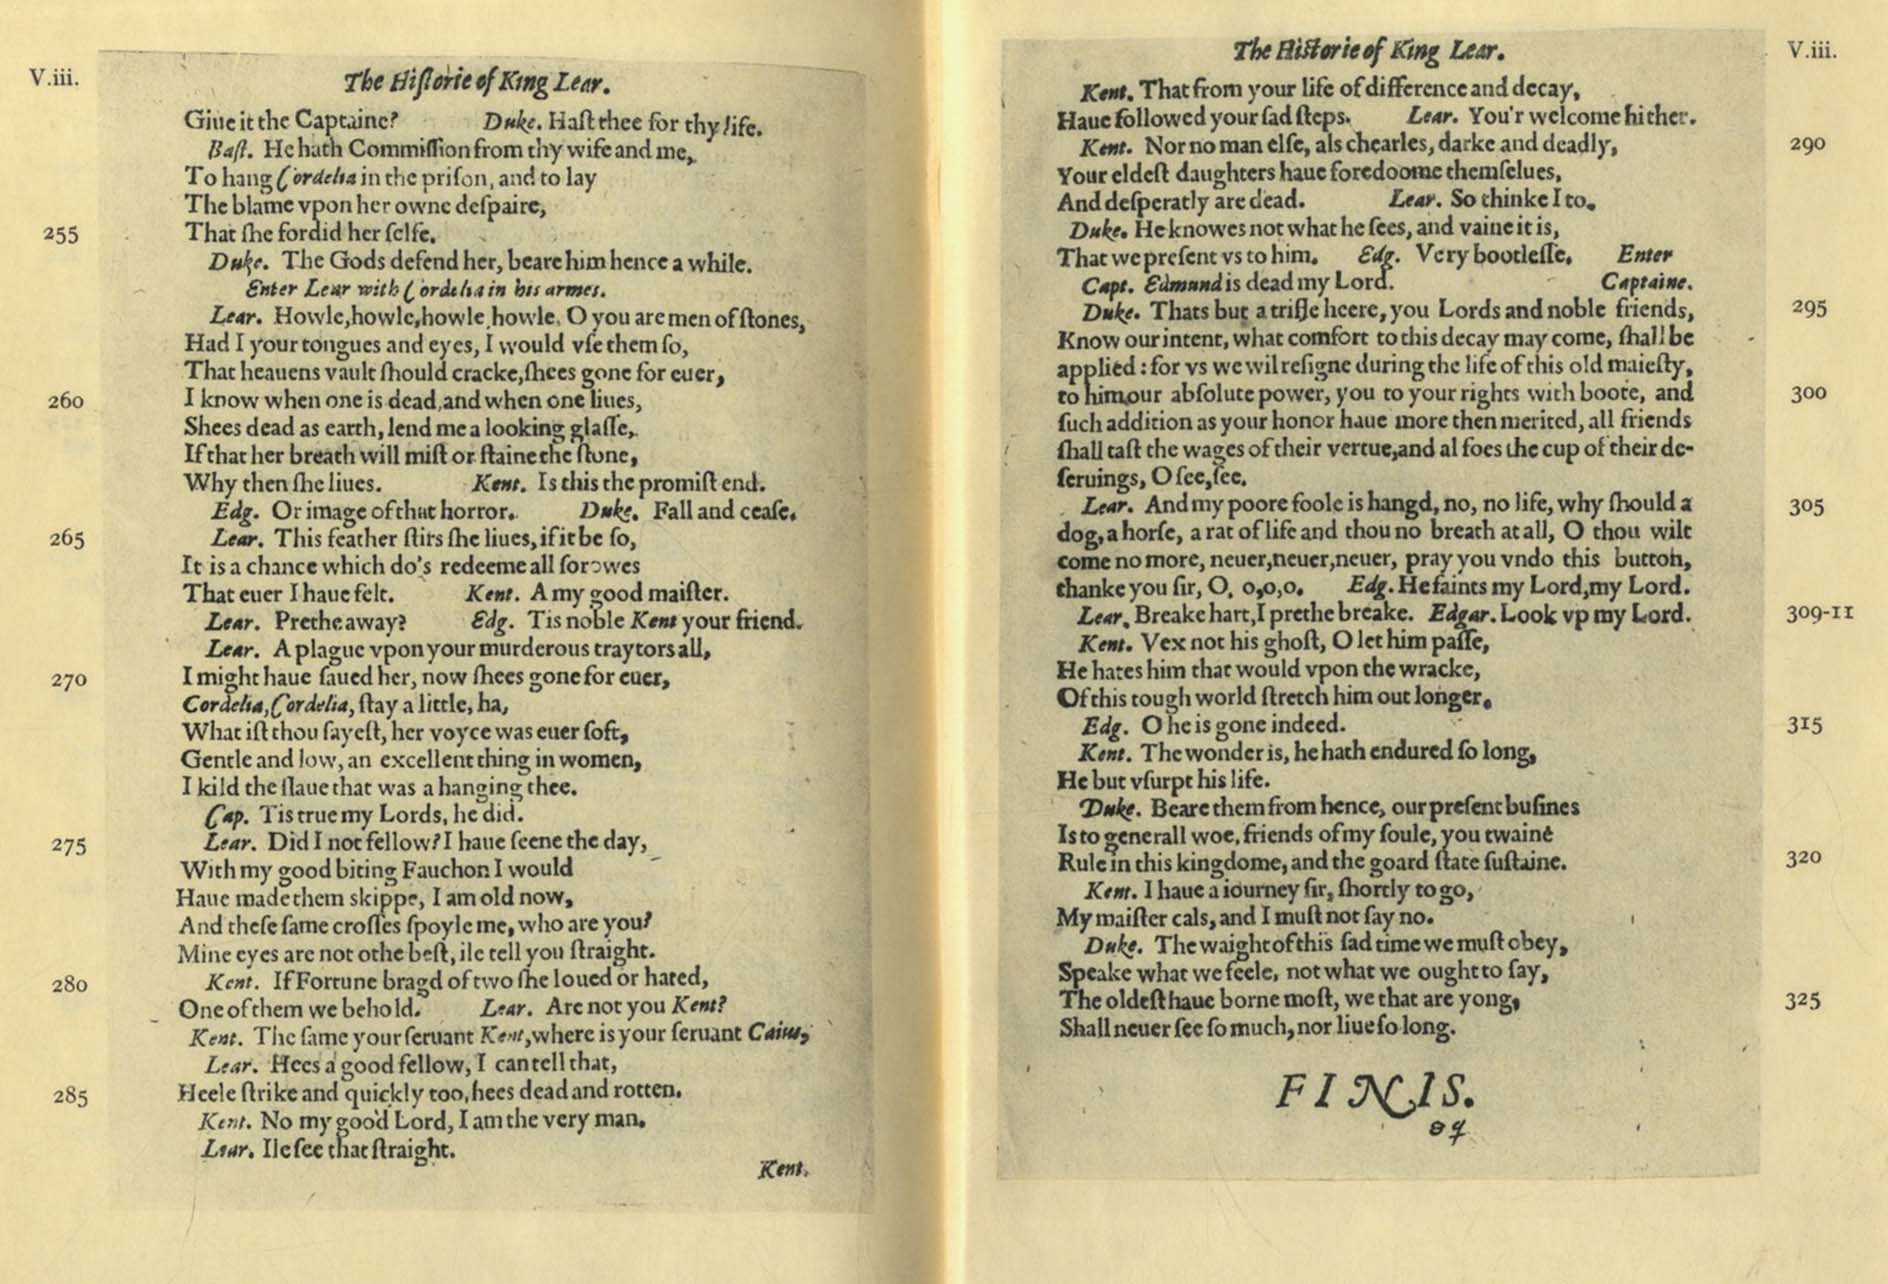 V.iii.
The Hiſtorie of King Lear.
Giue it the Captaine? Duke. Haſt thee for thy life.
Baſt. He hath Commiſſion from thy wife and me,
To hang Cordelia in the priſon, and to lay
The blame vpon her owne deſpaire,
255 That ſhe fordid her ſelfe.
Duke. The Gods defend her, beare him hence a while.
Enter Lear with Cordelia in his armes.
Lear. Howle, howle, howle, howle, O you are men of ſtones,
Had I your tongues and eyes, I would vſe them ſo,
That heauens vault ſhould cracke, ſhees gone for euer,
260 I know when one is dead, and when one liues,
Shees dead as earth, lend me a looking glaſſe,
If that her breath will miſt or ſtaine the ſtone,
Why then ſhe liues. Kent. Is this the promiſt end.
Edg. Or image of that horror. Duke. Fall and ceaſe.
265 Lear. This feather ſtirs ſhe liues, if it be ſo,
It is a chance which do's redeeme all ſorowes
That euer I haue felt. Kent. A my good maiſter.
Lear. Prethe away? Edg. Tis noble Kent your friend.
Lear. A plague vpon your murderous traytors all,
270 I might haue ſaued her, now ſhees gone for euer,
Cordelia, Cordelia, ſtay a little, ha,
What iſt thou ſayeſt, her voyce was euer ſoft,
Gentle and low, an excellent thing in women,
I kild the ſlaue that was a hanging thee.
Cap. Tis true my Lords, he did.
275 Lear. Did I not fellow? I haue ſeene the day,
With my good biting Fauchon I would
Haue made them skippe, I am old now,
And theſe ſame croſſes ſpoyle me, who are you?
Mine eyes are not othe beſt, ile tell you ſtraight.
280 Kent. If Fortune bragd of two ſhe loued or hated,
One of them we behold. Lear. Are not you Kent?
Kent. The ſame your ſeruant Kent, where is your ſeruant Caius,
Lear. Hees a good fellow, I can tell that,
285 Heele ſtrike and quickly too, hees dead and rotten.
Kent. No my good Lord, I am the very man.
Lear. Ile ſee that ſtraight.
Kent.
The Hiſtorie of King Lear. V.iii.
Kent. That from your life of difference and decay,
Haue followed your ſad ſteps. Lear. You'r welcome hither.
Kent. Nor no man elſe, als chearles, darke and deadly, 290
Your eldeſt daughters haue foredoome themſelues,
And deſperatly are dead. Lear. So thinke I to.
Duke. He knowes not what he ſees, and vaine it is,
That we preſent vs to him. Edg. Very bootleſſe. Enter
Capt. Edmund is dead my Lord. Captaine.
Duke. Thats but a trifle heere, you Lords and noble friends, 295
Know our intent, what comfort to this decay may come, ſhall be
applied: for vs we wil reſigne during the life of this old maieſty,
to him our abſolute power, you to your rights with boote, and 300
ſuch addition as your honor haue more then merited, all friends
ſhall taſt the wages of their vertue, and al foes the cup of their de-
ſeruings, O ſee, ſee.
Lear. And my poore foole is hangd, no, no life, why ſhould a 305
dog, a horſe, a rat of life and thou no breath at all, O thou wilt
come no more, neuer, neuer, neuer, pray you vndo this button,
thanke you ſir, O, o,o,o. Edg. He faints my Lord, my Lord.
Lear. Breake hart, I prethe breake. Edgar. Look vp my Lord. 309-11
Kent. Vex not his ghoſt, O let him paſſe,
He hates him that would vpon the wracke,
Of this tough world ſtretch him out longer.
Edg. O he is gone indeed. 315
Kent. The wonder is, he hath endured ſo long,
He but vſurpt his life.
Duke. Beare them from hence, our preſent buſines
Is to generall woe, friends of my ſoule, you twaine
Rule in this kingdome, and the goard ſtate ſuſtaine. 320
Kent. I haue a iourney ſir, ſhortly to go,
My maiſter cals, and I muſt not ſay no.
Duke. The waight of this ſad time we muſt obey,
Speake what we feele, not what we ought to ſay,
The oldeſt haue borne moſt, we that are yong, 325
Shall neuer ſee ſo much, nor liue ſo long.
FINIS.